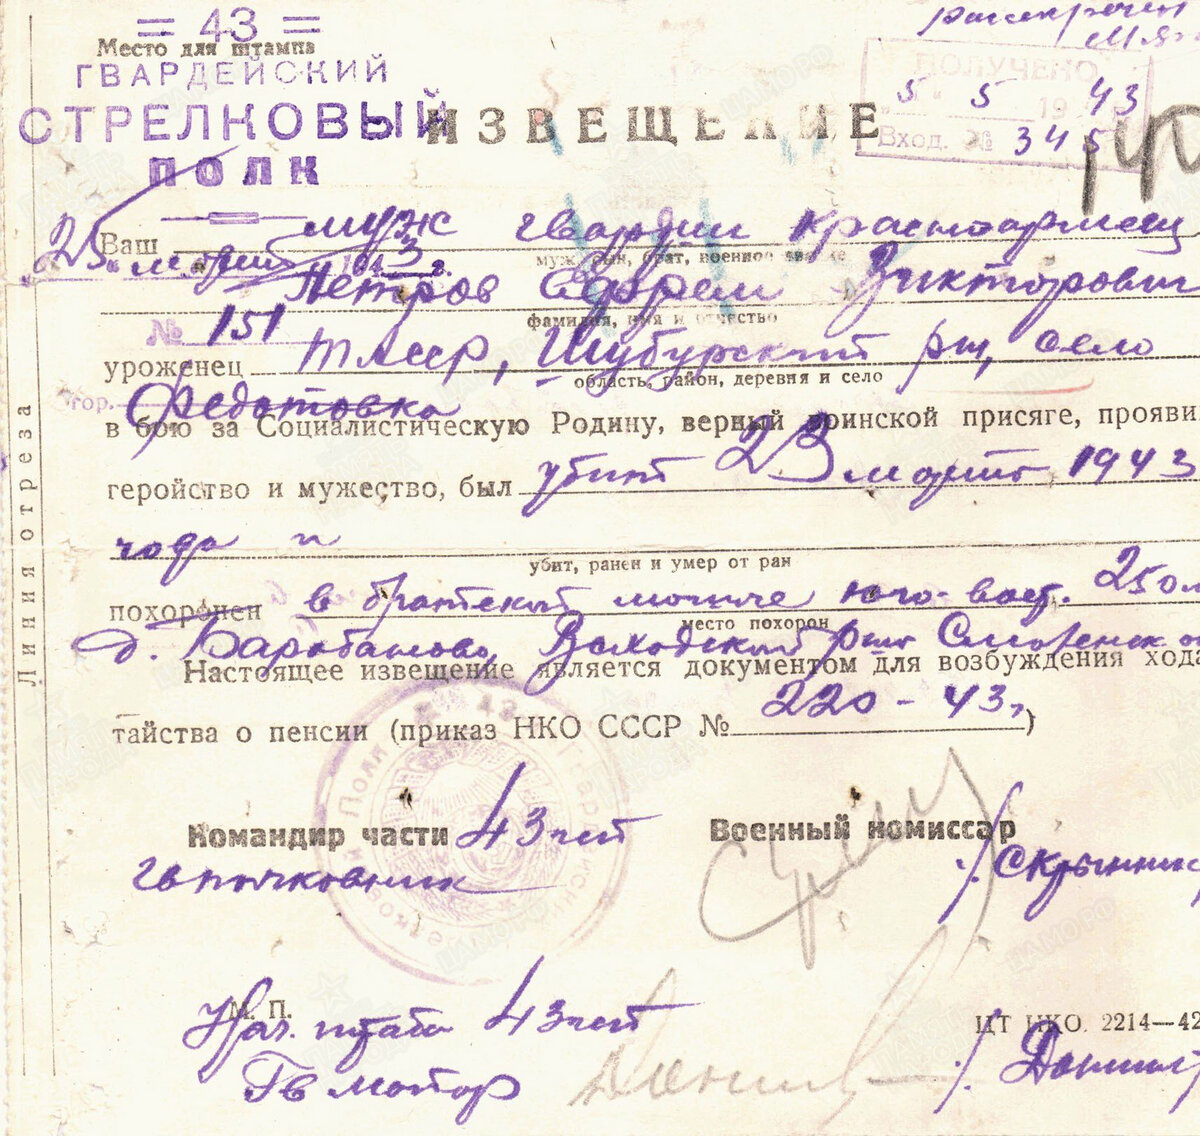 = 43 =
Место для штампа
ГВАРДЕЙСКИЙ
СТРЕЛКОВЫЙ
ПОЛК
ИЗВЕЩЕНИЕ
ПОЛУЧЕНО
"5" 5 1943
Вход. № 345
Ваш муж гвардии красноармеец
муж, сын, брат, военное звание
"25" марта 1943 г.
Петров Ефрем Викторович
фамилия, имя и отчество
№ 151
уроженец ТАССР, Шубурский р-н, село
область, район, деревня и село
гор. Федотовка
в бою за Социалистическую Родину, верный воинской присяге, прояви
геройство и мужество, был убит 23 марта 1943
года и
убит, ранен и умер от ран
похоронен в братской могиле юго-вост. 250 м
место похорон
д. Барабаново, Всходский р-н Смоленско
Настоящее извещение является документом для возбуждения хода
тайства о пенсии (приказ НКО СССР № 220-43г)
Командир части 43 гсп
Военный комиссар
гв полковник
М. П.
Нач. штаба 43 гсп
ЦТ НКО. 2214—42
Гв майор
Линия отреза